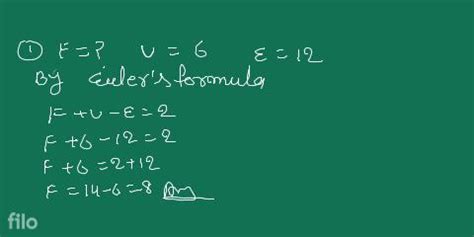 ① F = ? V = 6 E = 12
By Euler's formula
F + V - E = 2
F + 6 - 12 = 2
F + 6 = 2 + 12
F = 14 - 6 = 8 Ans
filo